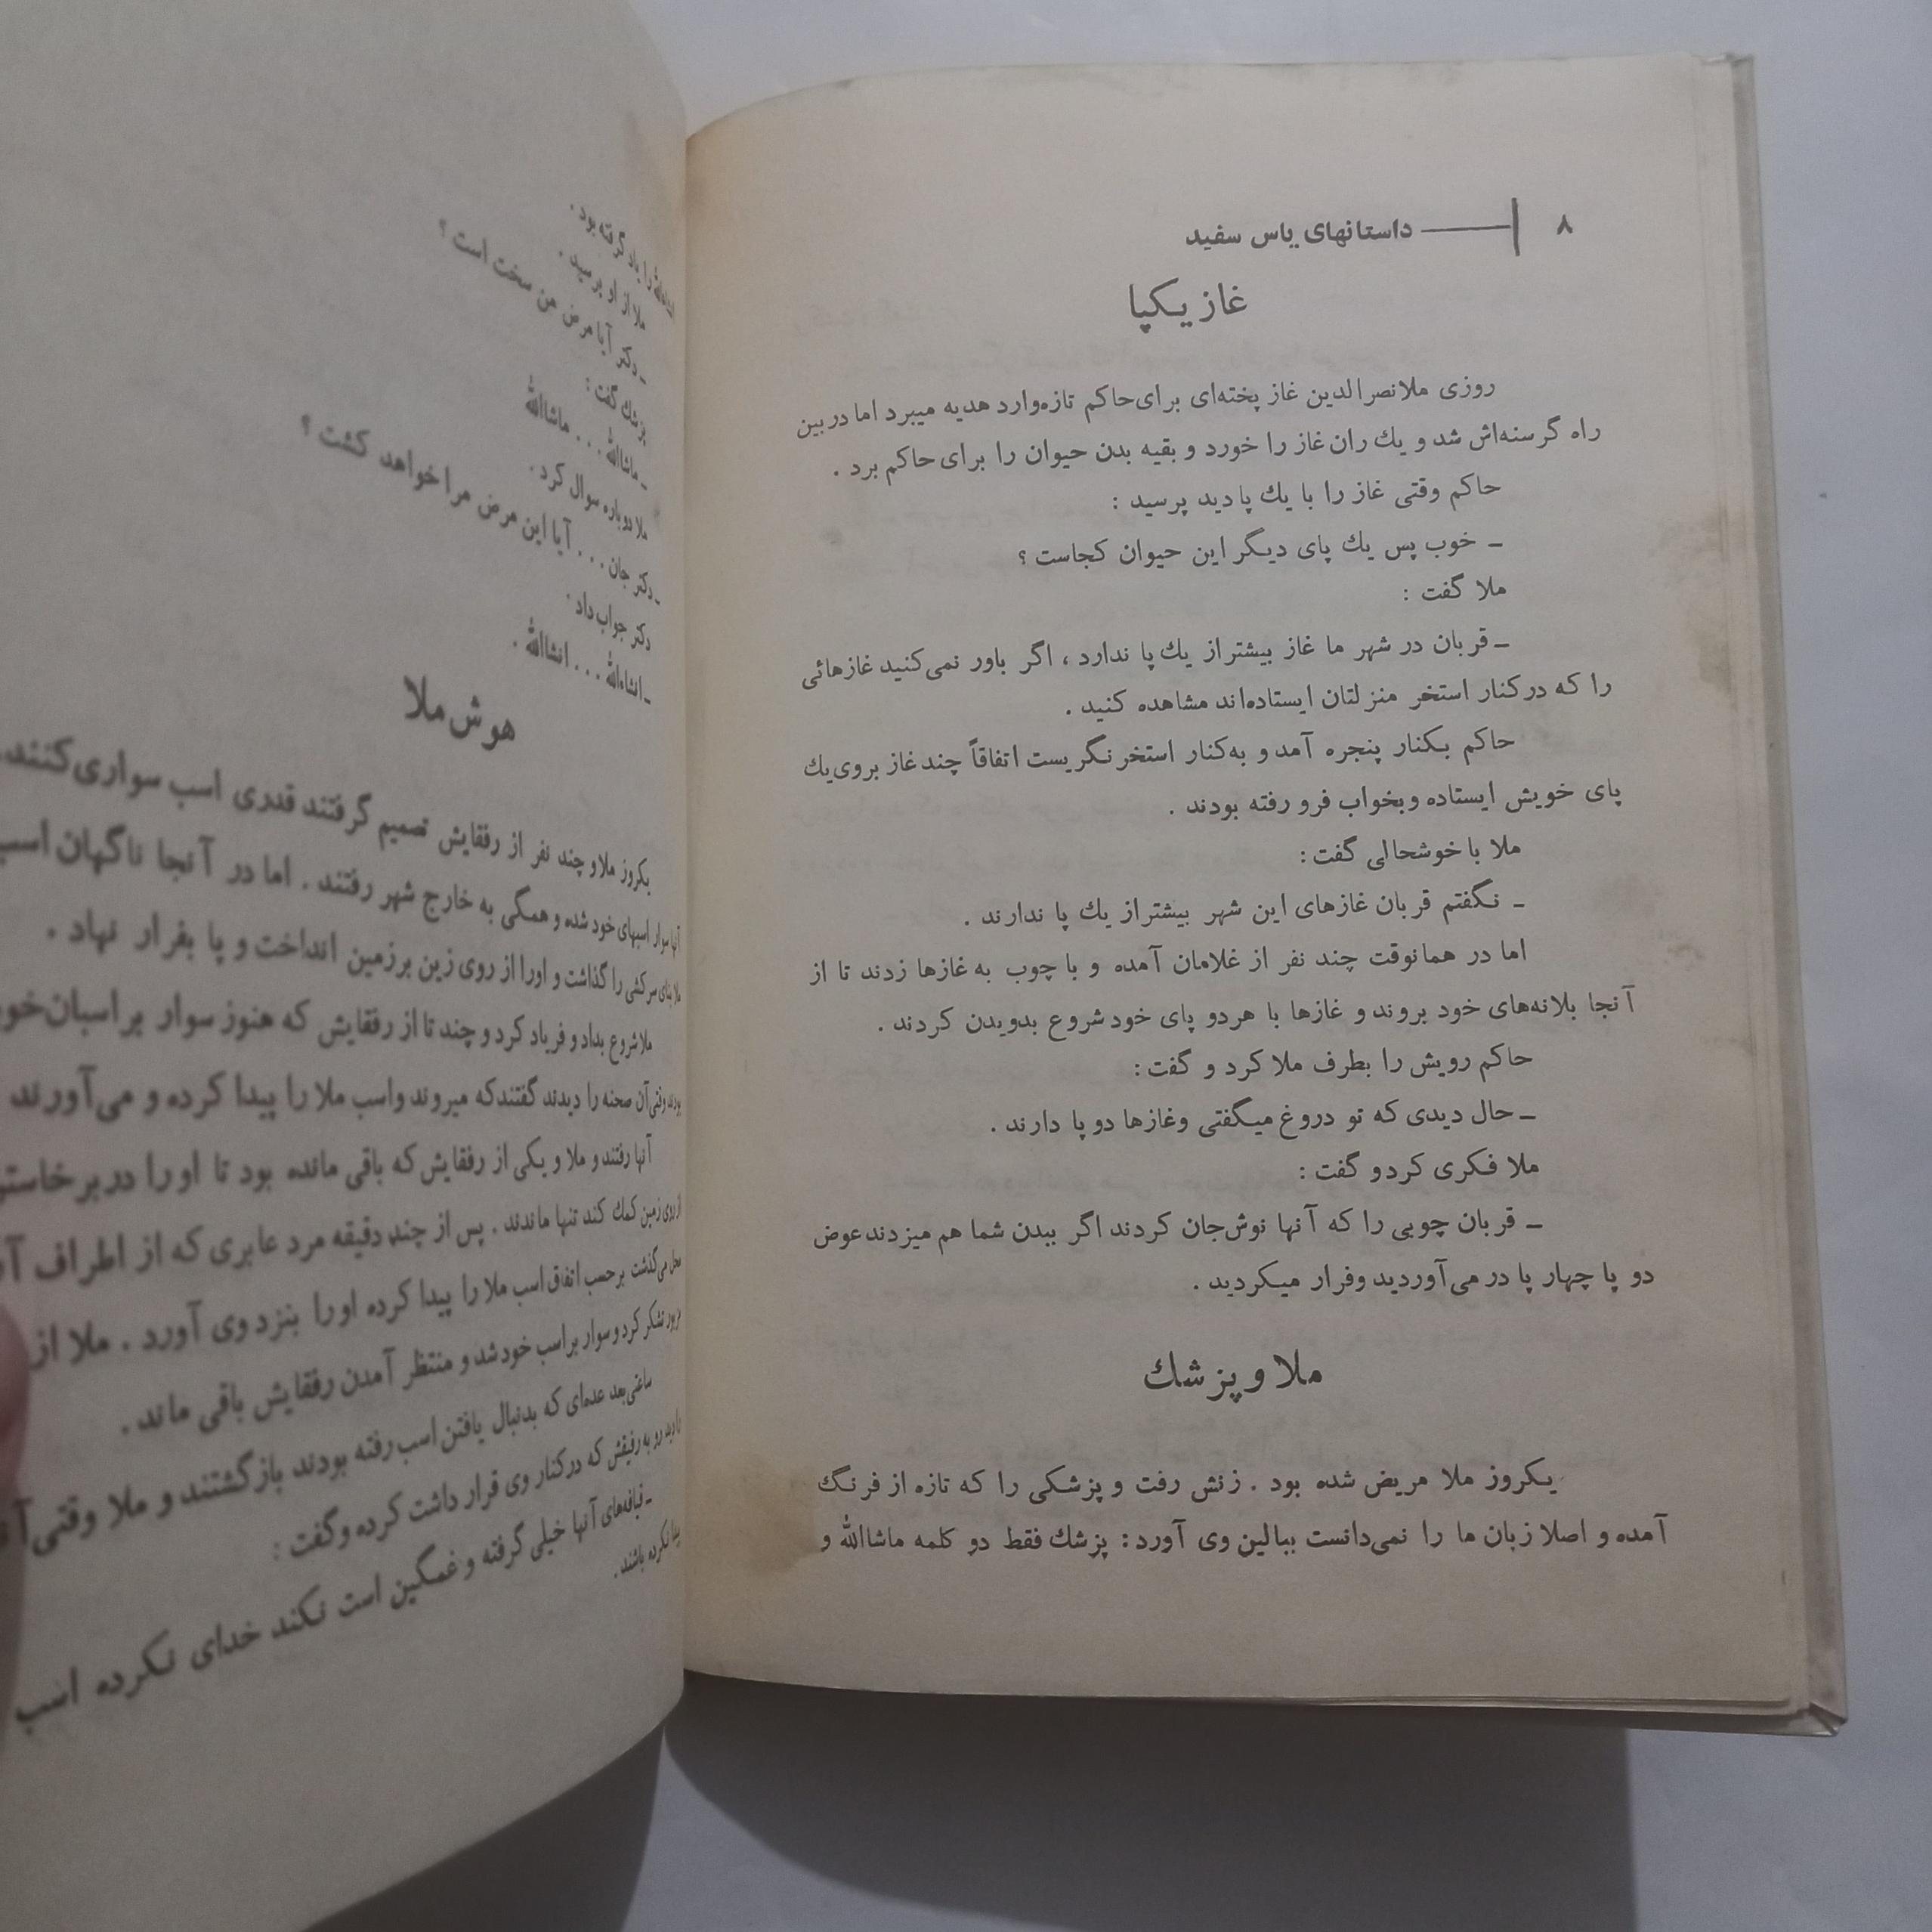 ۸ داستانهای یاس سفید
غاز یکپا
روزی ملانصرالدین غاز پخته‌ای برای حاکم تازه‌وارد هدیه میبرد اما در بین
راه گرسنه‌اش شد و یك ران غاز را خورد و بقیه بدن حیوان را برای حاکم برد .
حاکم وقتی غاز را با یك پا دید پرسید :
ـ خوب پس یك پای دیگر این حیوان کجاست ؟
ملا گفت :
ـ قربان در شهر ما غاز بیشتر از یك پا ندارد ، اگر باور نمی‌کنید غازهائی
را که در کنار استخر منزلتان ایستاده‌اند مشاهده کنید .
حاکم بکنار پنجره آمد و به‌کنار استخر نگریست اتفاقاً چند غاز بروی یك
پای خویش ایستاده و بخواب فرو رفته بودند .
ملا با خوشحالی گفت :
ـ نگفتم قربان غازهای این شهر بیشتر از یك پا ندارند .
اما در همانوقت چند نفر از غلامان آمده و با چوب به غازها زدند تا از
آنجا بلانه‌های خود بروند و غازها با هر دو پای خود شروع بدویدن کردند .
حاکم رویش را بطرف ملا کرد و گفت :
ـ حال دیدی که تو دروغ میگفتی و غازها دو پا دارند .
ملا فکری کرد و گفت :
ـ قربان چوبی را که آنها نوش‌جان کردند اگر ببدن شما هم میزدند عوض
دو پا چهار پا در می‌آوردید و فرار میکردید .
ملا و پزشك
یکروز ملا مریض شده بود . زنش رفت و پزشکی را که تازه از فرنگ
آمده و اصلا زبان ما را نمی‌دانست ببالین وی آورد : پزشك فقط دو کلمه ماشاالله و
را یاد گرفته بود .
ملا از او پرسید .
ـ دکتر آیا مرض من سخت است ؟
پزشك گفت :
ـ ماشاالله . . . ماشاالله
ملا دوباره سوال کرد .
ـ دکتر جان . . . آیا این مرض مرا خواهد کشت ؟
دکتر جواب داد .
ـ انشاءالله . . . انشاالله .
هوش ملا
یکروز ملا و چند نفر از رفقایش تصمیم گرفتند قدری اسب سواری کنند.
آنها سوار اسبهای خود شده و همگی به خارج شهر رفتند . اما در آنجا ناگهان اسب
ملا بنای سرکشی را گذاشت و اورا از روی زین برزمین انداخت و پا بفرار نهاد .
ملا شروع بداد و فریاد کرد و چند تا از رفقایش که هنوز سوار براسبان
بودند وقتی آن صحنه را دیدند گفتند که میروند و اسب ملا را پیدا کرده و می‌آورند
آنها رفتند و ملا و یکی از رفقایش که باقی مانده بود تا اورا در
از روی زمین کمك کند تنها ماندند . پس از چند دقیقه مرد عابری که از اطراف
محل می‌گذشت برحسب اتفاق اسب ملا را پیدا کرده اورا بنزد وی آورد . ملا از
تشکر کرد و سوار براسب خود شد و منتظر آمدن رفقایش باقی ماند .
ساعتی بعد عده‌ای که بدنبال یافتن اسب رفته بودند بازگشتند و ملا وقتی
را دید رو به رفیقش که در کنار وی قرار داشت کرده و گفت :
ـ قیافه‌های آنها خیلی گرفته و غمگین است نکند خدای نکرده اسب
پیدا نکرده باشند .